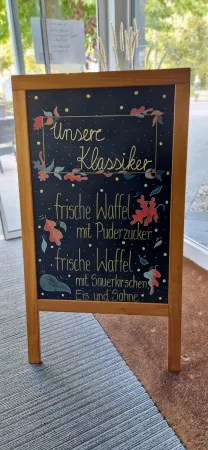 Unsere
Klassiker
frische Waffel
mit Puderzucker
frische Waffel
mit Sauerkirschen
Eis und Sahne